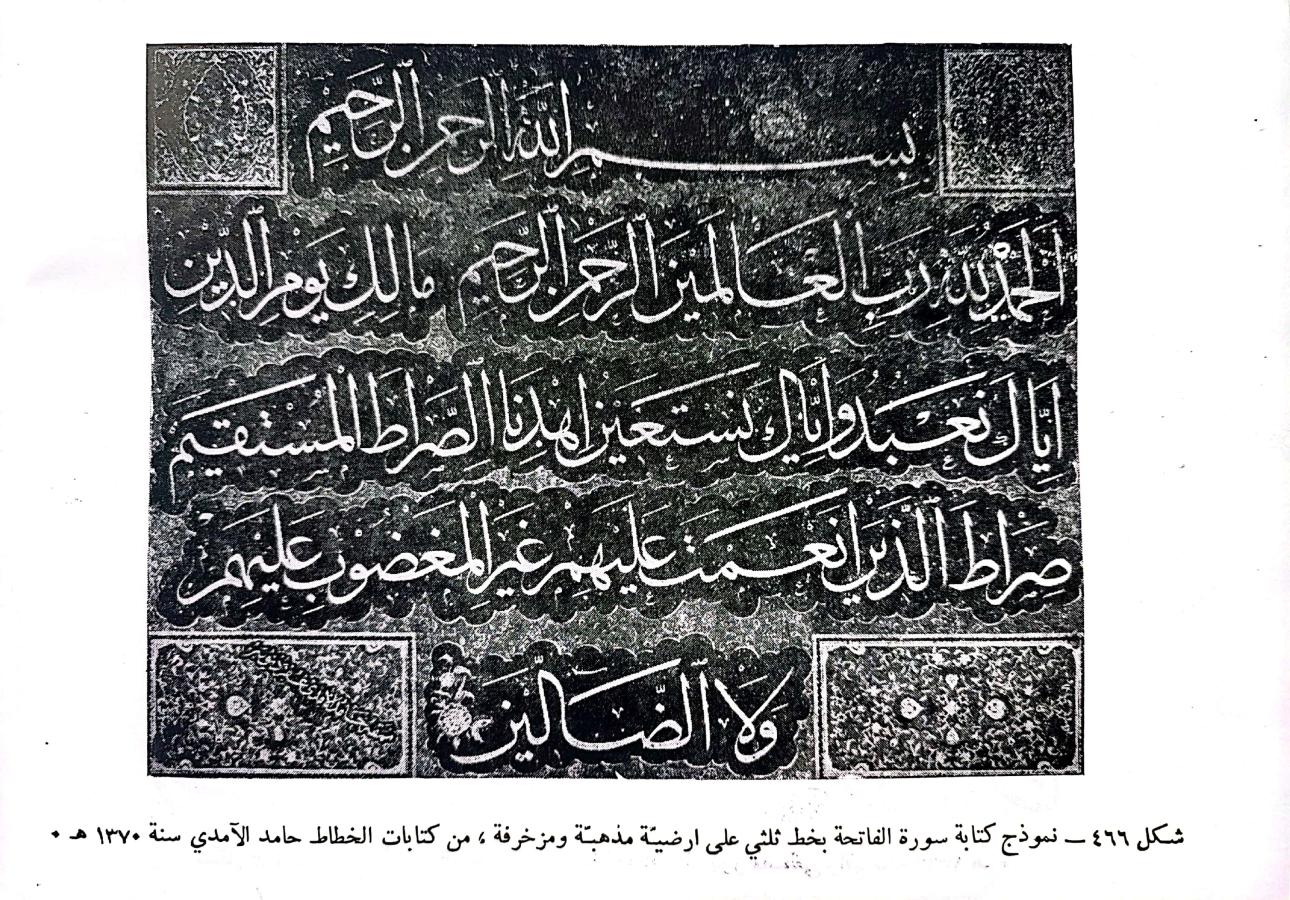 بسم الله الرحمن الرحيم
الحمد لله رب العالمين الرحمن الرحيم مالك يوم الدين
اياك نعبد واياك نستعين اهدنا الصراط المستقيم
صراط الذين انعمت عليهم غير المغضوب عليهم
ولا الضالين
شكل ٤٦٦ ــ نموذج كتابة سورة الفاتحة بخط ثلثي على ارضيّة مذهبّة ومزخرفة ، من كتابات الخطاط حامد الآمدي سنة ١٣٧٠ هـ ٠